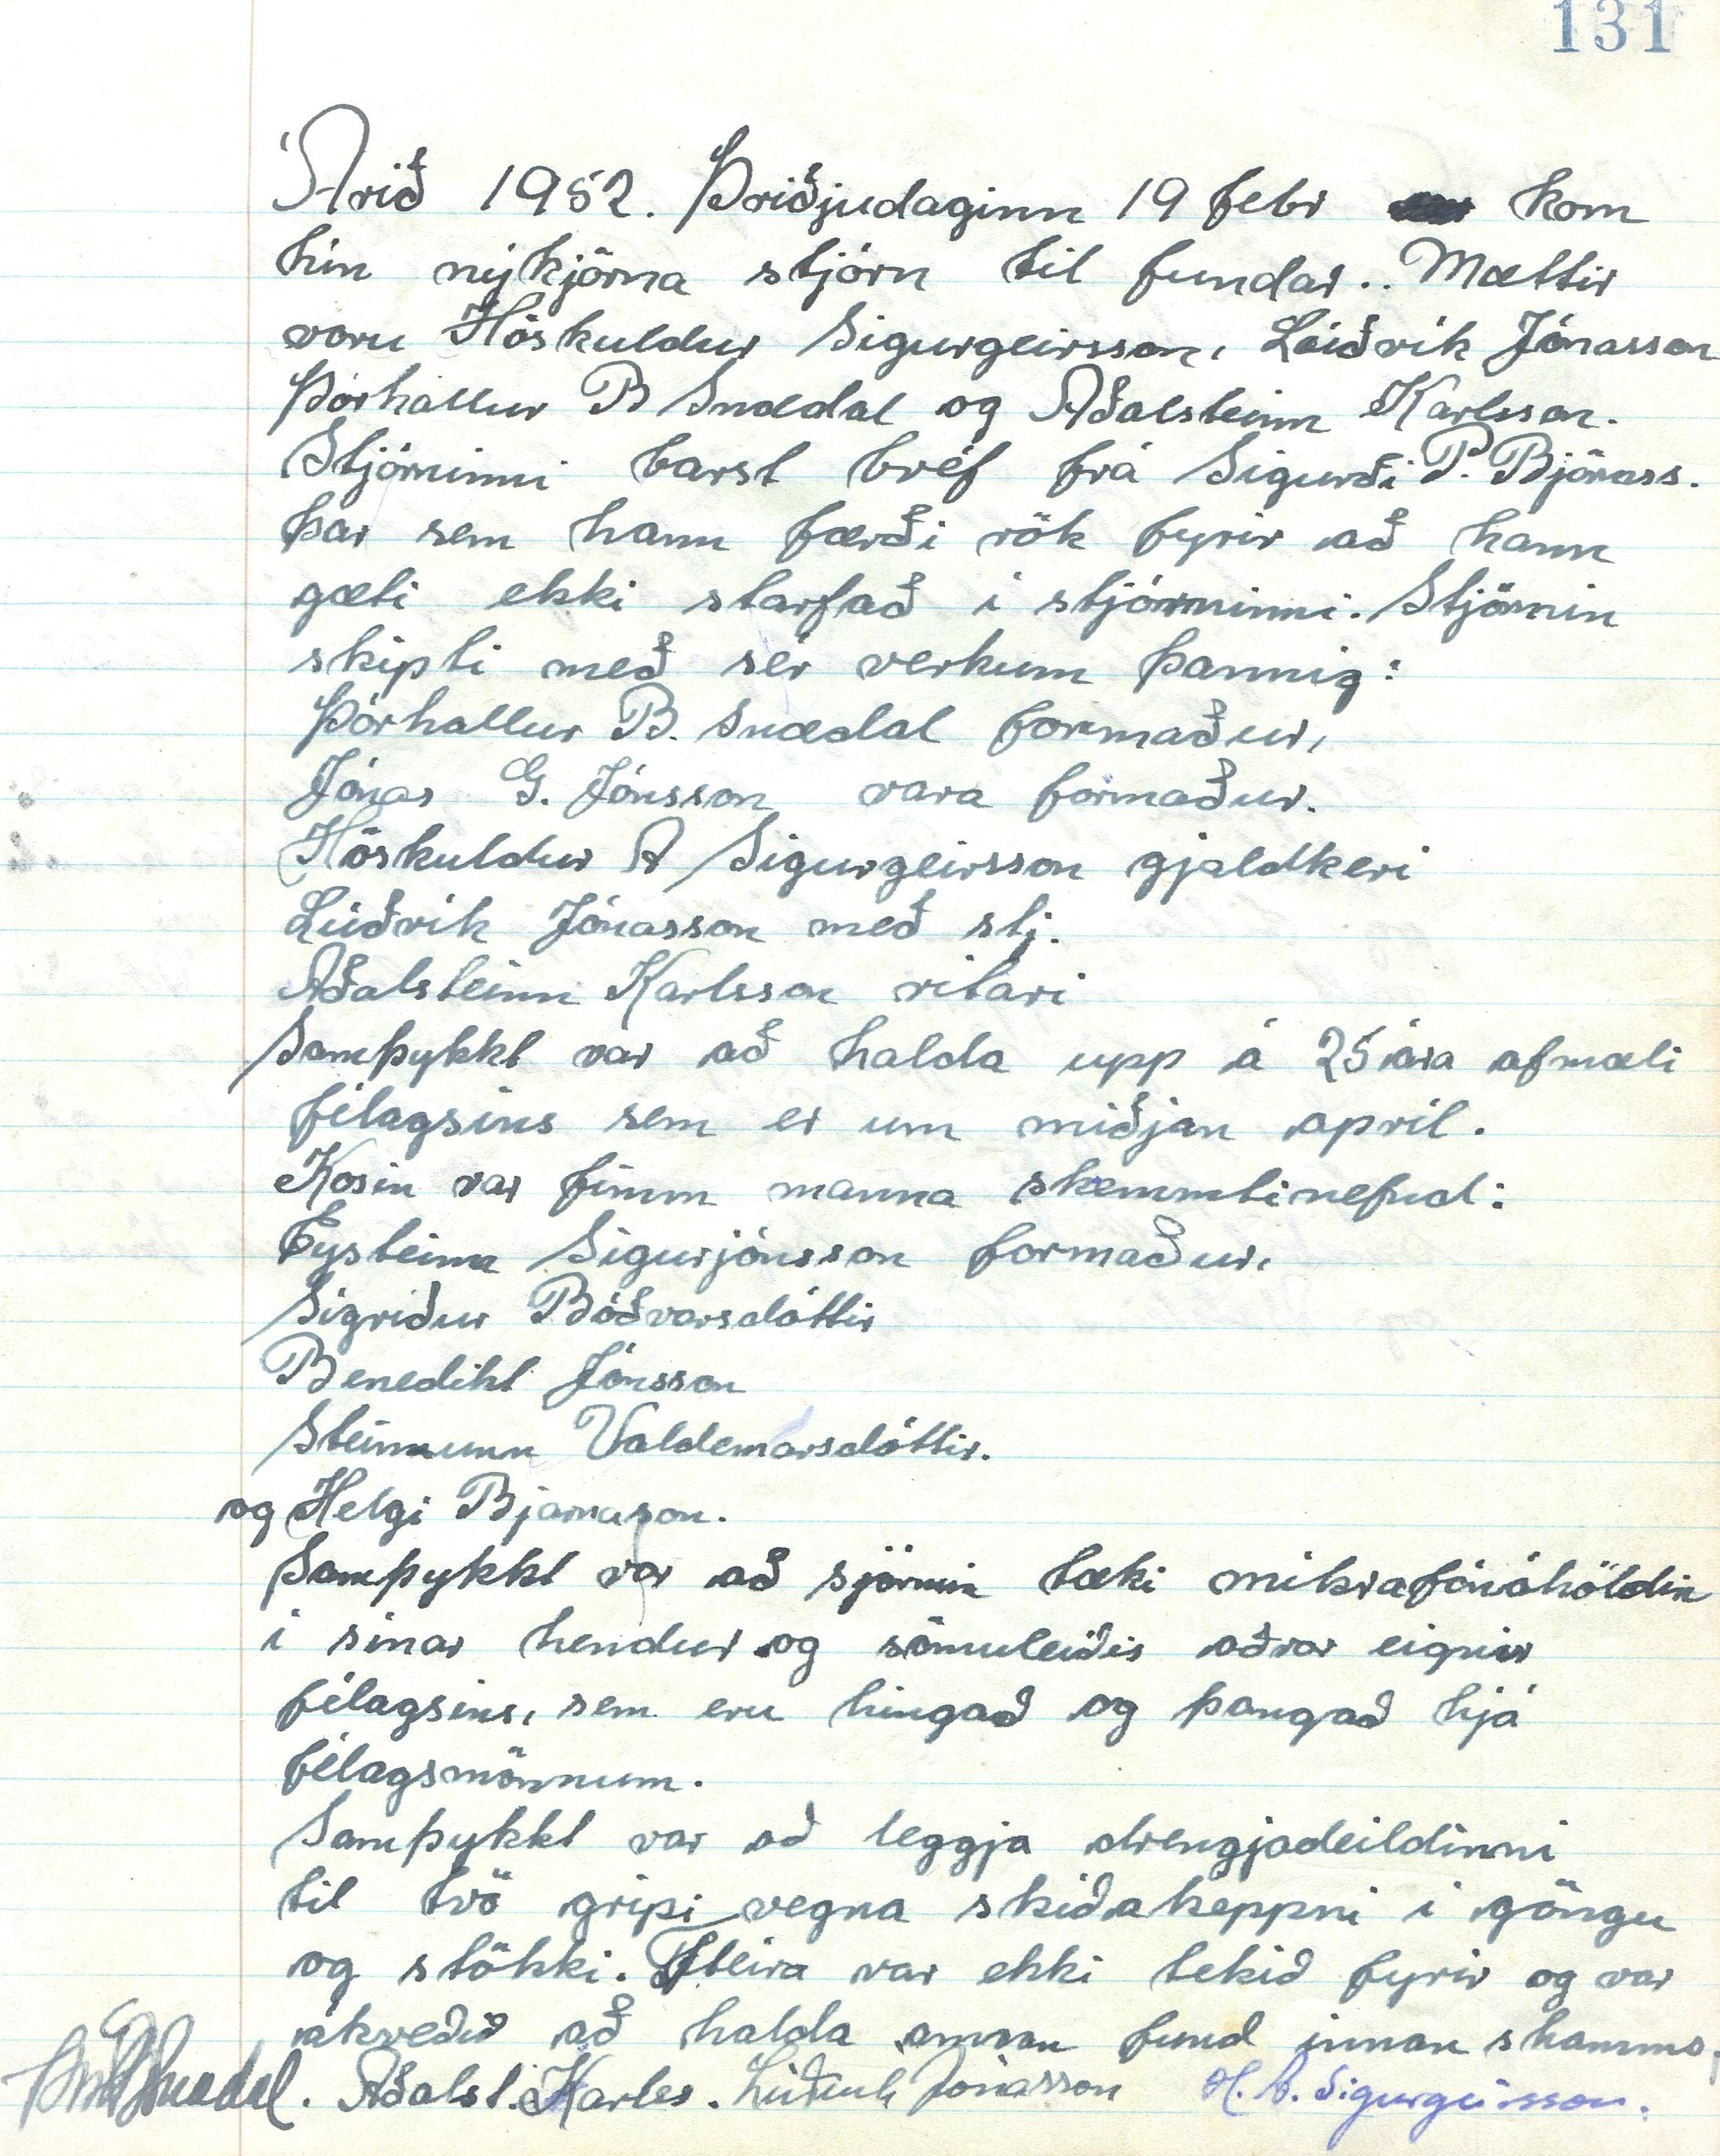 131
Árið 1952. Þriðjudaginn 19 febr kom
hin nýkjörna stjórn til fundar.. Mættir
voru Höskuldur Sigurgeirsson, Lúðvík Jónasson
Þórhallur B Snædal og Aðalsteinn Karlsson.
Stjórninni barst bréf frá Sigurði P. Björnss.
þar sem hann færði rök fyrir að hann
gæti ekki starfað í stjórninni. Stjórnin
skipti með sér verkum þannig:
Þórhallur B. Snædal formaður,
Jónas G. Jónsson vara formaður.
Höskuldur A Sigurgeirsson gjaldkeri
Lúðvík Jónasson með stj.
Aðalsteinn Karlsson ritari
Samþykkt var að halda upp á 25 ára afmæli
félagsins sem er um miðjan apríl.
Kosin var fimm manna skemmtinefnd:
Eysteinn Sigurjónsson formaður,
Sigríður Böðvarsdóttir
Benedikt Jónsson
Steinnunn Valdemarsdóttir.
og Helgi Bjarnason.
Samþykkt var að sjörnin tæki mikrafónáhöldin
í sínar hendur og sömuleiðis aðrar eignir
félagsins, sem eru hingað og þangað hjá
félagsmönnum.
Samþykkt var að leggja drengjadeildinni
til tvö gripi vegna skiðakeppni i göngu
og stökki. Fleira var ekki tekið fyrir og var
ákveðið að halda annan fund innan skamms.
Snædal. Aðalst. Karlss. Lúðvík Jónasson H. A. Sigurgeirsson.